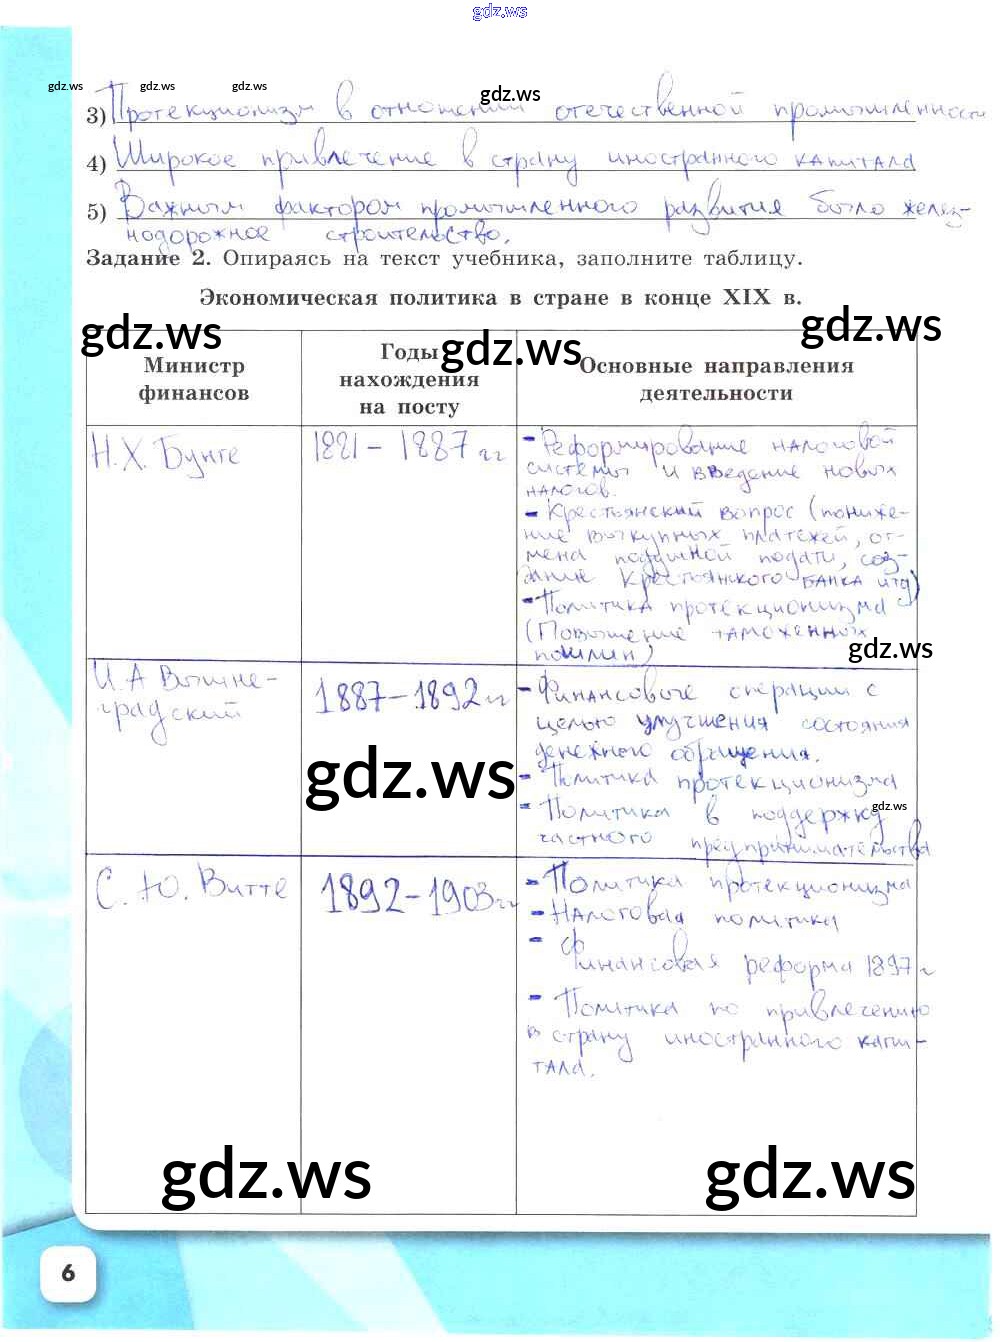 gdz.ws
gdz.ws gdz.ws gdz.ws gdz.ws
3) Протекционизм в отношении отечественной промышленности
4) Широкое привлечение в страну иностранного капитала
5) Важным фактором промышленного развития было желез-
нодорожное строительство.
Задание 2. Опираясь на текст учебника, заполните таблицу.
Экономическая политика в стране в конце XIX в.
gdz.ws gdz.ws gdz.ws
Министр
финансов
Годы
нахождения
на посту
Основные направления
деятельности
Н.Х. Бунге
1881 – 1887 гг
- Реформирование налоговой
системы и введение новых
налогов.
- Крестьянский вопрос (пониже-
ние выкупных платежей, от-
мена подушной подати, соз-
дание Крестьянского банка итд)
- Политика протекционизма
(Повышение таможенных
пошлин)
gdz.ws
И.А Вышне-
градский
1887–1892 гг
- Финансовые операции с
целью улучшения состояния
денежного обращения.
- Политика протекционизма
- Политика в поддержку
частного предпринимательства
gdz.ws
gdz.ws
С.Ю. Витте
1892–1903 гг
- Политика протекционизма
- Налоговая политика
- Финансовая реформа 1897 г
- Политика по привлечению
в страну иностранного капи-
тала.
gdz.ws gdz.ws
6